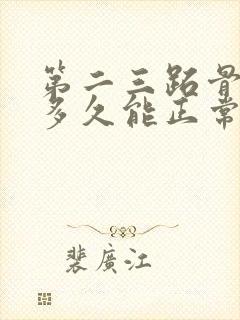 第二三跖骨
多久能正常
裴廣江